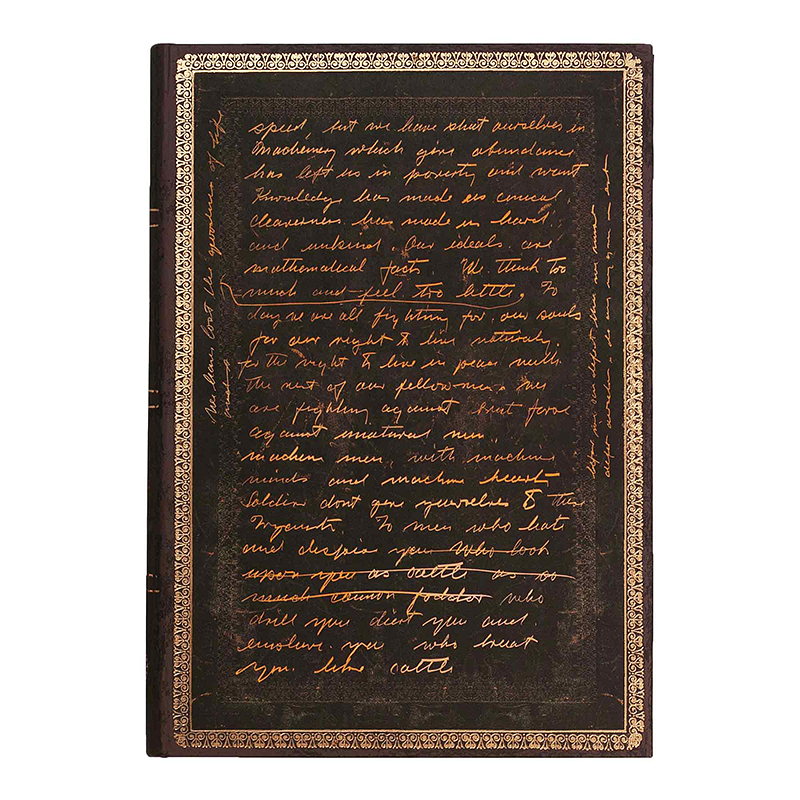 speed, but we have shut ourselves in
Machenery which gives abundance
has left us in poverty and want
Knowledge has made us cynical
cleaverness has made us hard
and unkind. Our ideals are
mathematical facts. We think too
much and feel too little, To
day we are all fighting for our souls
for our right to live naturaly,
for the right to live in peace with
the rest of our fellow men.
are fighting against brut force
against unatural men.
machen men, with machine
minds and machine hearts
Soldiers dont give yourselves to these
To men who hat
and despise you who look
upon you as cattle as so
much canon fodder who
drill you diert you and
enslave you who treat
you like cattle
We have lost the goodness of life